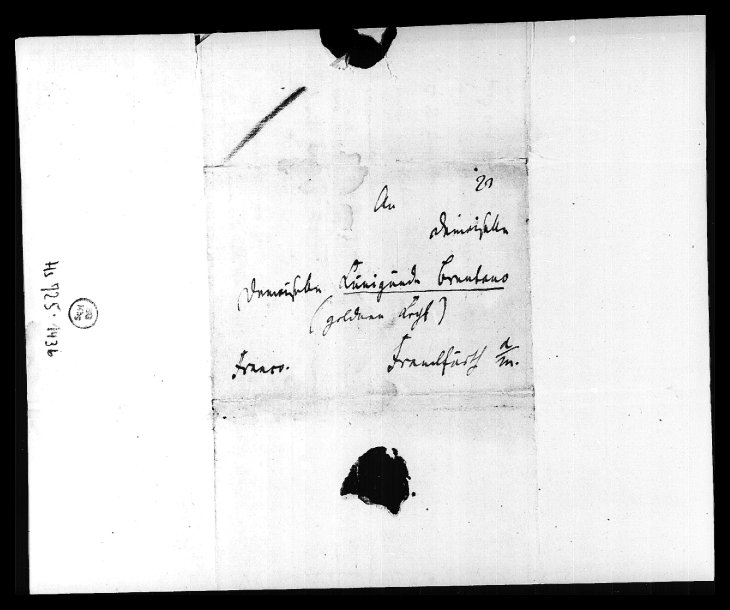 An
Demoiselle
Demoiselle Kunigunde Brentano
(goldnen Kopf)
Franco.
Franckfurth a/m.
Hs 725. 1436